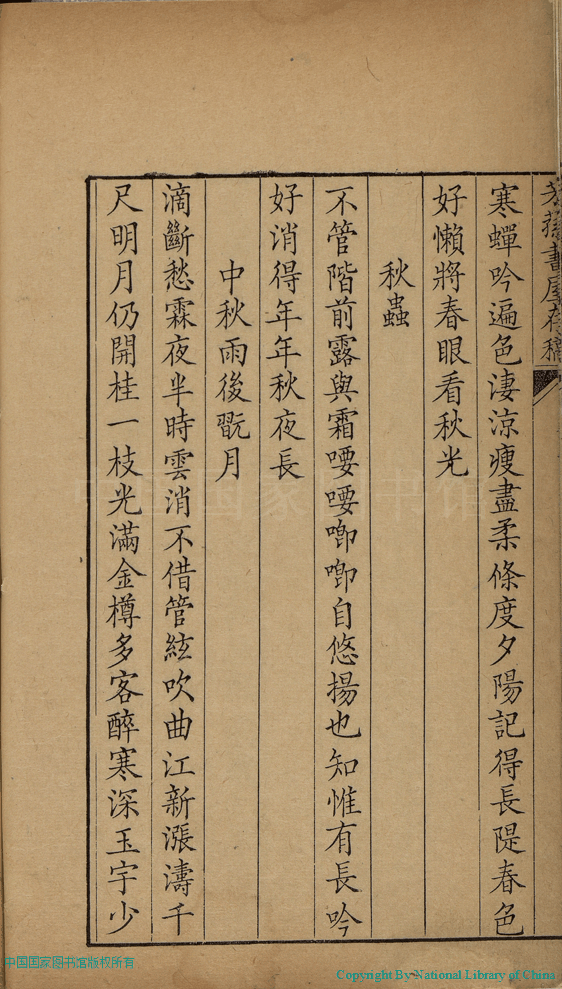 寒蟬吟遍色淒涼瘦盡柔條度夕陽記得長隄春色
好懶將春眼看秋光
秋蟲
不管階前露與霜喓喓唧唧自悠揚也知惟有長吟
好消得年年秋夜長
中秋雨後翫月
滴斷愁霖夜半時雲消不借管絃吹曲江新漲濤千
尺明月仍開桂一枝光滿金樽多客醉寒深玉宇少
書屋存稿
中国国家图书馆
中国国家图书馆版权所有
Copyright By National Library of China